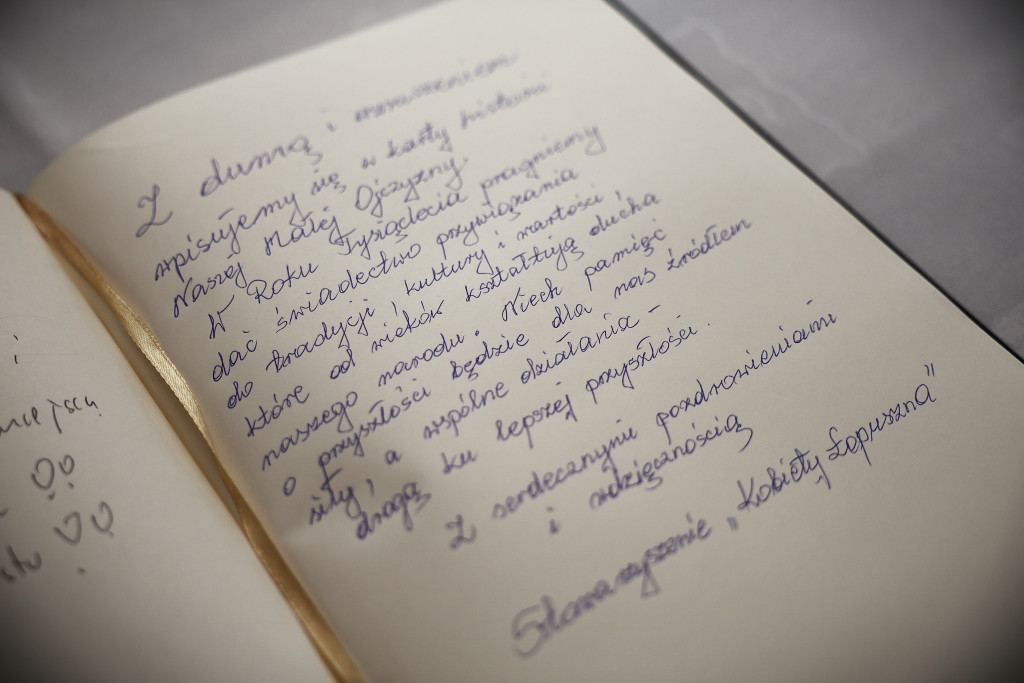 Z dumą i wzruszeniem
wpisujemy się w karty historii
Naszej Małej Ojczyzny.
W Roku Tysiąclecia pragniemy
dać świadectwo przywiązania
do tradycji, kultury i wartości,
które od wieków kształtują ducha
naszego narodu. Niech pamięć
o przyszłości będzie dla nas źródłem
siły, a wspólne działania –
drogą ku lepszej przyszłości.
Z serdecznymi pozdrowieniami
i wdzięcznością
Stowarzyszenie „Kobiety Łopuszna"